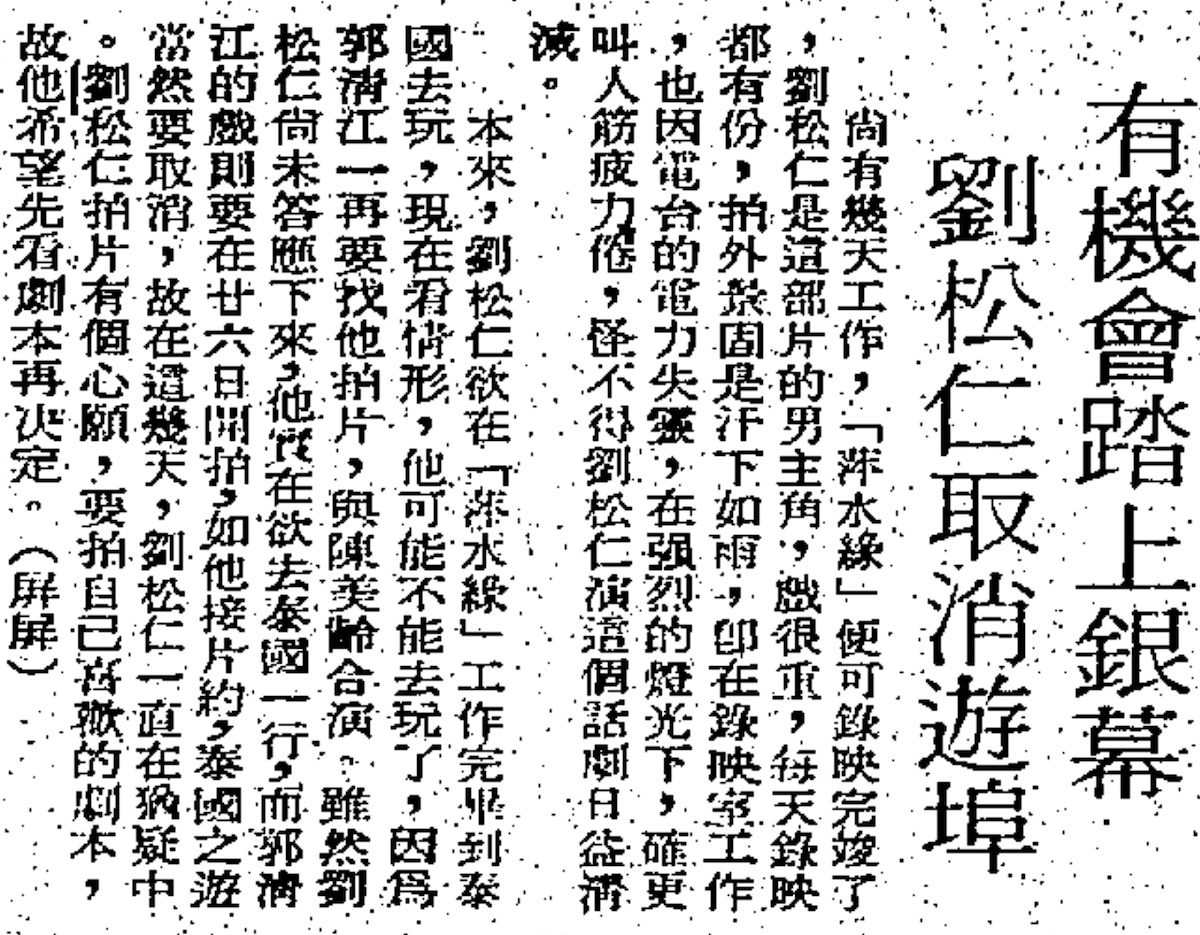 有機會踏上銀幕
劉松仁取消遊埠
尚有幾天工作，「萍水緣」便可錄映完竣了
，劉松仁是這部片的男主角，戲很重，每天錄映
都有份，拍外景固是汗下如雨，卽在錄映室工作
，也因電台的電力失靈，在强烈的燈光下，確更
叫人筋疲力倦，怪不得劉松仁演這個話劇日益淸
減。
本來，劉松仁欲在「萍水緣」工作完畢到泰
國去玩，現在看情形，他可能不能去玩了，因爲
郭淸江一再要找他拍片，與陳美齡合演。雖然劉
松仁尙未答應下來，他實在欲去泰國一行，而郭淸
江的戲則要在廿六日開拍，如他接片約，泰國之遊
當然要取消，故在這幾天，劉松仁一直在猶疑中
。劉松仁拍片有個心願，要拍自己喜歡的劇本，
故他希望先看劇本再决定。（屏屏）